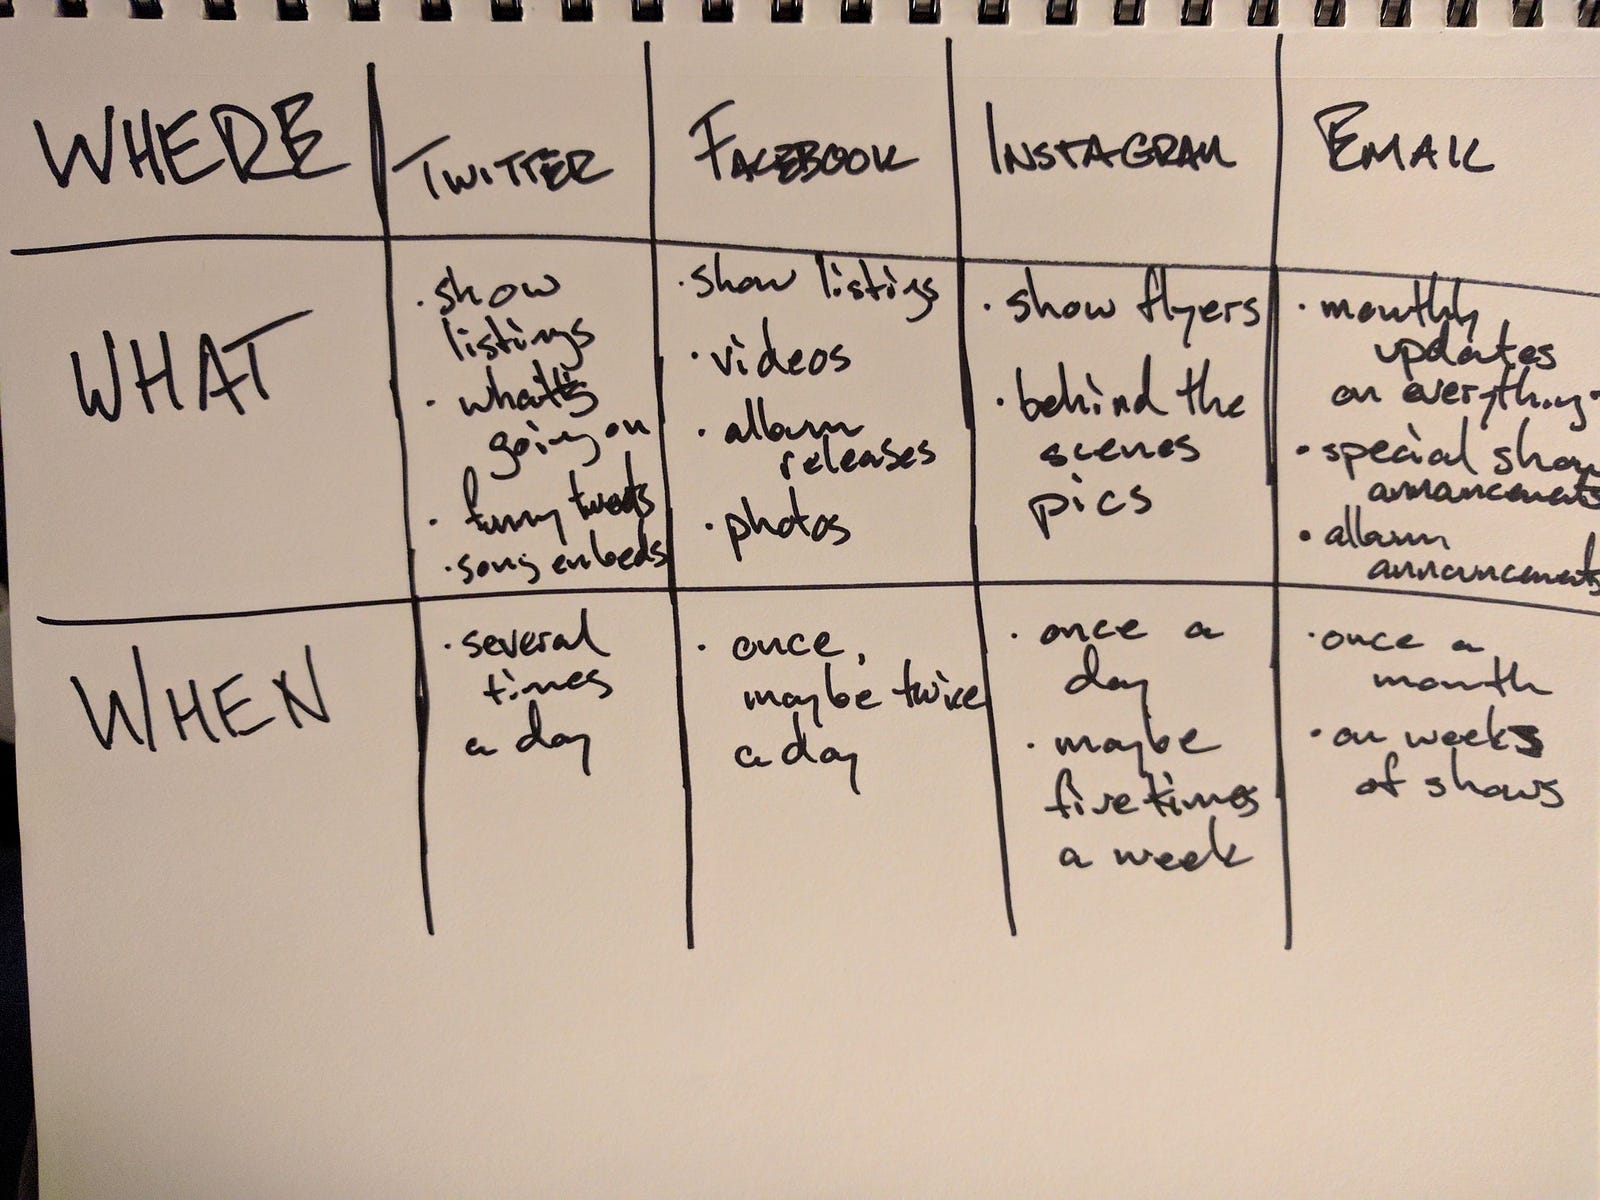 WHERE
TWITTER
FACEBOOK
INSTAGRAM
EMAIL
WHAT
· show
listings
· what's
going on
· funny tweets
· song embeds
· show listings
· videos
· album
releases
· photos
· show flyers
· behind the
scenes
pics
· monthly
updates
on everything
· special show
announcements
· album
announcements
WHEN
· several
times
a day
· once,
maybe twice
a day
· once a
day
· maybe
five times
a week
· once a
month
· on weeks
of shows